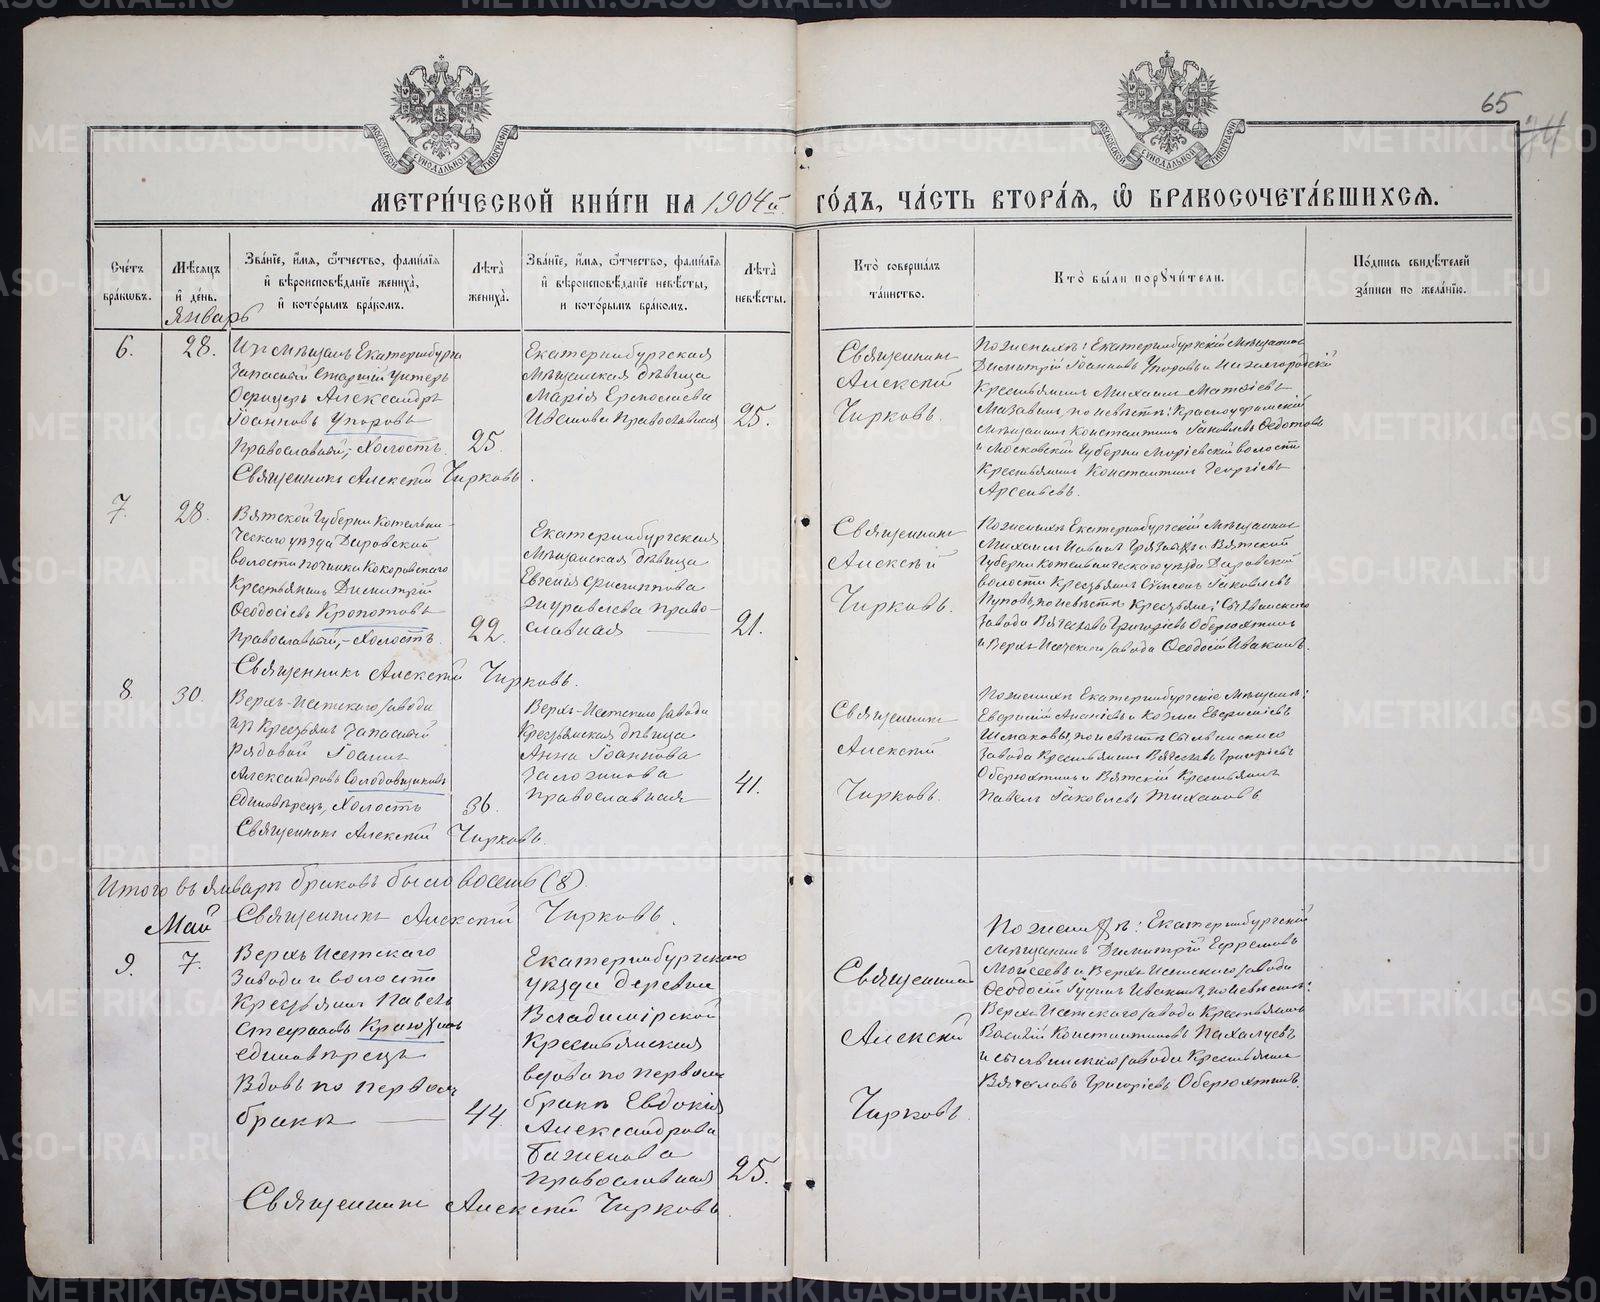 65
74
МЕТРИ́ЧЕСКОЙ КНИ́ГИ НА 1904й ГО́ДЪ, ЧА́СТЬ ВТОРА́Я, Ѡ БРАКОСОЧЕТА́ВШИХСЯ.
Сче́тъ бра́ковъ.
Мѣ́сяцъ и҆ де́нь.
Зва́нїе, и҆́мя, ѻ҆́тчество, фами́лїя и҆ вѣроисповѣ́данїе жениха̀, и҆ кото́рымъ бра́комъ.
Лѣта̀ жениха̀.
Зва́нїе, и҆́мя, ѻ҆́тчество, фами́лїя и҆ вѣроисповѣ́данїе невѣ́сты, и кото́рымъ бра́комъ.
Лѣта̀ невѣ́сты.
Кто̀ соверша́лъ та́инство.
Кто̀ бы́ли порꙋчи́тели.
По́дпись свидѣ́телей за́писи по жела́нїю.
Январь
6.
28.
Изъ мѣщанъ Екатеринбурга
запасный старшій унтеръ
Офицеръ Александръ
Іоанновъ Упоровъ
Православный, Холостъ
25.
Екатеринбургская
Мѣщанская дѣвица
Марія
Иванова Православная
25.
Священникъ
Алексѣй
Чирковъ.
По женихѣ: Екатеринбургскій Мѣщанинъ
Димитрій Іоанновъ Упоровъ и Нижегородскій
Крестьянинъ Михаилъ Матвѣевъ
по невѣстѣ: Красноуфимскій
Мѣщанинъ Константинъ Іаковлевъ Федотовъ
и Московской Губерніи волости
Крестьянинъ Константинъ Георгіевъ
Арсеньевъ.
Священникъ Алексѣй Чирковъ.
7.
28.
Вятской Губерніи Котельни-
ческаго уѣзда Даровской
волости починка
Крестьянинъ Димитрій
Феодосіевъ Кропотовъ
Православный, Холостъ.
22.
Екатеринбургская
Мѣщанская дѣвица
Евгенія Филиппова
Журавлева Право-
славная
21.
Священникъ
Алексѣй
Чирковъ.
По женихѣ Екатеринбургскій Мѣщанинъ
Михаилъ и Вятской
Губерніи Котельническаго уѣзда Даровской
волости Крестьянинъ Симеонъ Іаковлевъ
по невѣстѣ Крестьяне: Сылвинскаго
завода Вячеславъ Григоріевъ Оберюхтинъ
и Верхъ-Исетскаго завода Феодосій Ивакинъ.
Священникъ Алексѣй Чирковъ.
8.
30.
Верхъ-Исетскаго завода
изъ Крестьянъ запасный
рядовой Іоаннъ
Александровъ Солодовщиковъ
единовѣрецъ, Холостъ
36.
Верхъ-Исетскаго завода
Крестьянская дѣвица
Анна Іоаннова
Православная
41.
Священникъ
Алексѣй
Чирковъ.
По женихѣ Екатеринбургскіе Мѣщане:
и Козма
Шмаковы, по невѣстѣ Сылвинскаго
завода Крестьянинъ Вячеславъ Григоріевъ
Оберюхтинъ и Вятскій Крестьянинъ
Павелъ Іаковлевъ Тихановъ
Священникъ Алексѣй Чирковъ
Итого въ Январѣ браковъ было восемь (8).
Священникъ Алексѣй Чирковъ.
Май
9.
7.
Верхъ Исетскаго
Завода и волости
Крестьянинъ Павелъ
Стефановъ
единовѣрецъ
Вдовъ по первомъ
бракѣ
44.
Екатеринбургскаго
уѣзда деревни
Владимірской
Крестьянская
вдова по первомъ
бракѣ Евдокія
Александрова
Баженова
православная
25.
Священникъ
Алексѣй
Чирковъ.
По женихѣ: Екатеринбургскій
мѣщанинъ Димитрій Ефремовъ
Моисеевъ и Верхъ Исетскаго завода
Феодосій Ивакинъ, по невѣстѣ:
Верхъ-Исетскаго завода Крестьянинъ
Василій Константиновъ Пахалуевъ
и Сылвинскаго завода Крестьянинъ
Вячеславъ Григоріевъ Оберюхтинъ.
Священникъ Алексѣй Чирковъ.